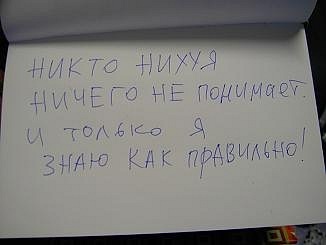 НИКТО НИХУЯ
НИЧЕГО НЕ ПОНИМАЕТ.
И ТОЛЬКО Я
ЗНАЮ КАК ПРАВИЛЬНО!